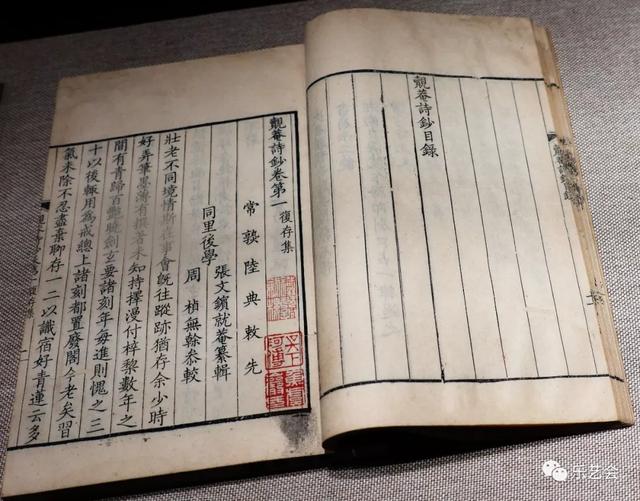 覿菴詩鈔目錄
覿菴詩鈔卷第一 復存集
常熟陸典敕先
張文鑌就菴纂輯
同里後學
周楨無幹叅較
壯老不同境情斷事會旣往蹤跡猶存余少時
好弄筆墨薄有撰著未知持擇漫付梓棃數年之
間有青歸百艷曉劍玄要諸刻年每進則愧之三
十以後輙用為戒總上諸刻都置廢閣今老矣習
氣未除不忍盡棄聊存一二以識宿好青蓮云多
乐艺会